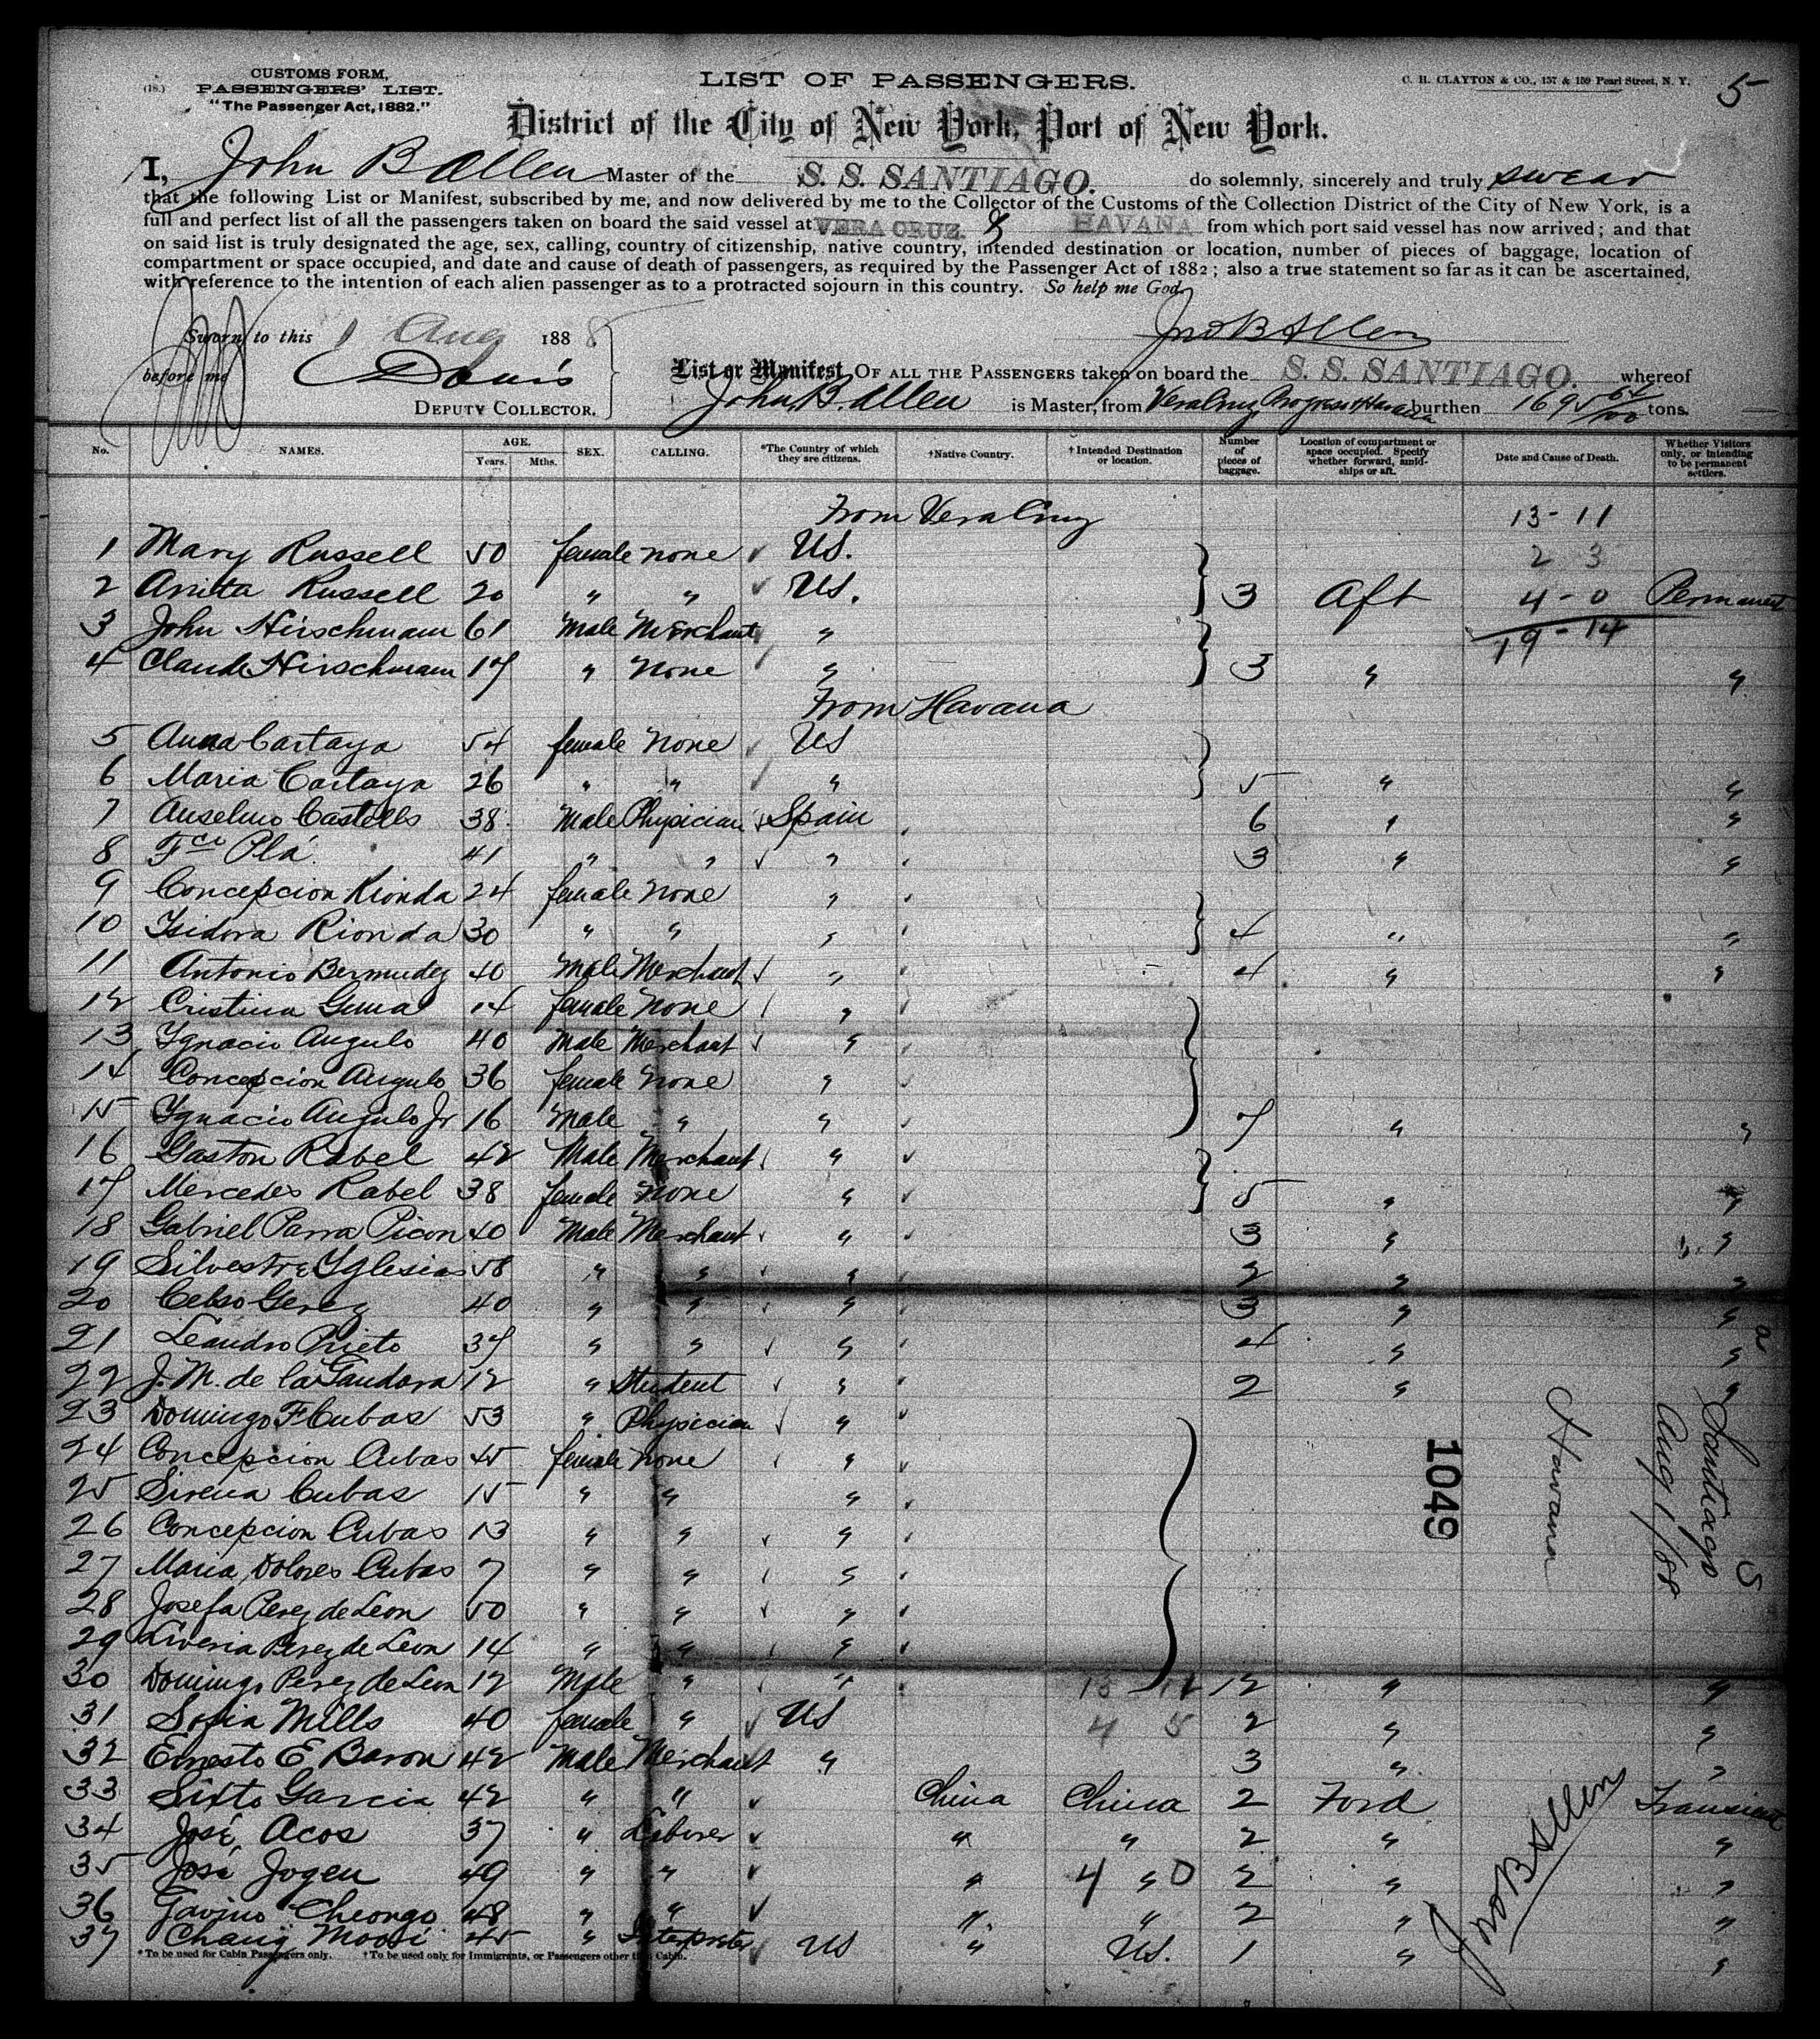 CUSTOMS FORM,
(18.) PASSENGERS' LIST.
"The Passenger Act, 1882."
LIST OF PASSENGERS.
C. H. CLAYTON & CO., 157 & 159 Pearl Street, N. Y.
5
District of the City of New York, Port of New York.
I, John B Allen Master of the S. S. SANTIAGO. do solemnly, sincerely and truly swear
that the following List or Manifest, subscribed by me, and now delivered by me to the Collector of the Customs of the Collection District of the City of New York, is a
full and perfect list of all the passengers taken on board the said vessel at VERA CRUZ & HAVANA from which port said vessel has now arrived; and that
on said list is truly designated the age, sex, calling, country of citizenship, native country, intended destination or location, number of pieces of baggage, location of
compartment or space occupied, and date and cause of death of passengers, as required by the Passenger Act of 1882; also a true statement so far as it can be ascertained,
with reference to the intention of each alien passenger as to a protracted sojourn in this country. So help me God.
Sworn to this 1 Aug 1888
Jno B Allen
before me Davis
DEPUTY COLLECTOR.
List or Manifest OF ALL THE PASSENGERS taken on board the S. S. SANTIAGO. whereof
John B. Allen is Master, from Vera Cruz Progreso & Havana burthen 1695 64/100 tons.
No. NAMES. AGE. Years. Mths. SEX. CALLING. *The Country of which they are citizens. †Native Country. †Intended Destination or location. Number of pieces of baggage. Location of compartment or space occupied. Specify whether forward, amidships or aft. Date and Cause of Death. Whether Visitors only, or intending to be permanent settlers.
From Vera Cruz 13-11
1 Mary Russell 50 female none US. 2 3
2 Anita Russell 20 " " US. 3 Aft 4-0 Permanent
3 John Hirschmann 61 Male Merchant " 19-14
4 Claude Hirschmann 17 " None " 3 " "
From Havana
5 Anna Cartaya 54 female none US
6 Maria Cartaya 26 " " " 5 " "
7 Anselmo Castells 38 Male Physician Spain 6 " "
8 Fco Plá 41 " " " 3 " "
9 Concepcion Rionda 24 female none "
10 Isidora Rionda 30 " " " 4 " "
11 Antonio Bermudez 40 Male Merchant " 4 " "
12 Cristina Guma 14 female none "
13 Ygnacio Angulo 40 Male Merchant "
14 Concepcion Angulo 36 female none "
15 Ygnacio Angulo Jr 16 Male " " 7 " "
16 Gaston Rabel 42 Male Merchant "
17 Mercedes Rabel 38 female none " 5 " "
18 Gabriel Parra Picon 40 Male Merchant " 3 " "
19 Silvestre Yglesias 58 " " " 2 " "
20 Celso Gerez 40 " " " 3 " "
21 Leandro Prieto 37 " " " 4 " "
22 J. M. de la Gandara 12 " Student " 2 " "
23 Domingo F Cubas 53 " Physician "
24 Concepcion Cubas 45 female none "
25 Sirena Cubas 15 " " "
26 Concepcion Cubas 13 " " "
27 Maria Dolores Cubas 7 " " "
28 Josefa Perez de Leon 50 " " "
29 Perez de Leon 14 " " "
30 Domingo Perez de Leon 12 Male " " 12 " "
31 Sofia Mills 40 female " US 4 5 2 " "
32 Ernesto E Baron 42 Male Merchant " 3 " "
33 Sixto Garcia 42 " " China China 2 Ford Transient
34 José Acos 37 " Laborer " " 2 " "
35 José Jogen 49 " " " 4 " 0 2 " "
36 Gavino Cheongo 48 " " " " 2 " "
37 Chang 45 " Interpreter US " US. 1 " "
1049
Havana
Santiago
Aug 1/88
5
Jno B Allen
*To be used for Cabin Passengers only. †To be used only for Immigrants, or Passengers other than Cabin.